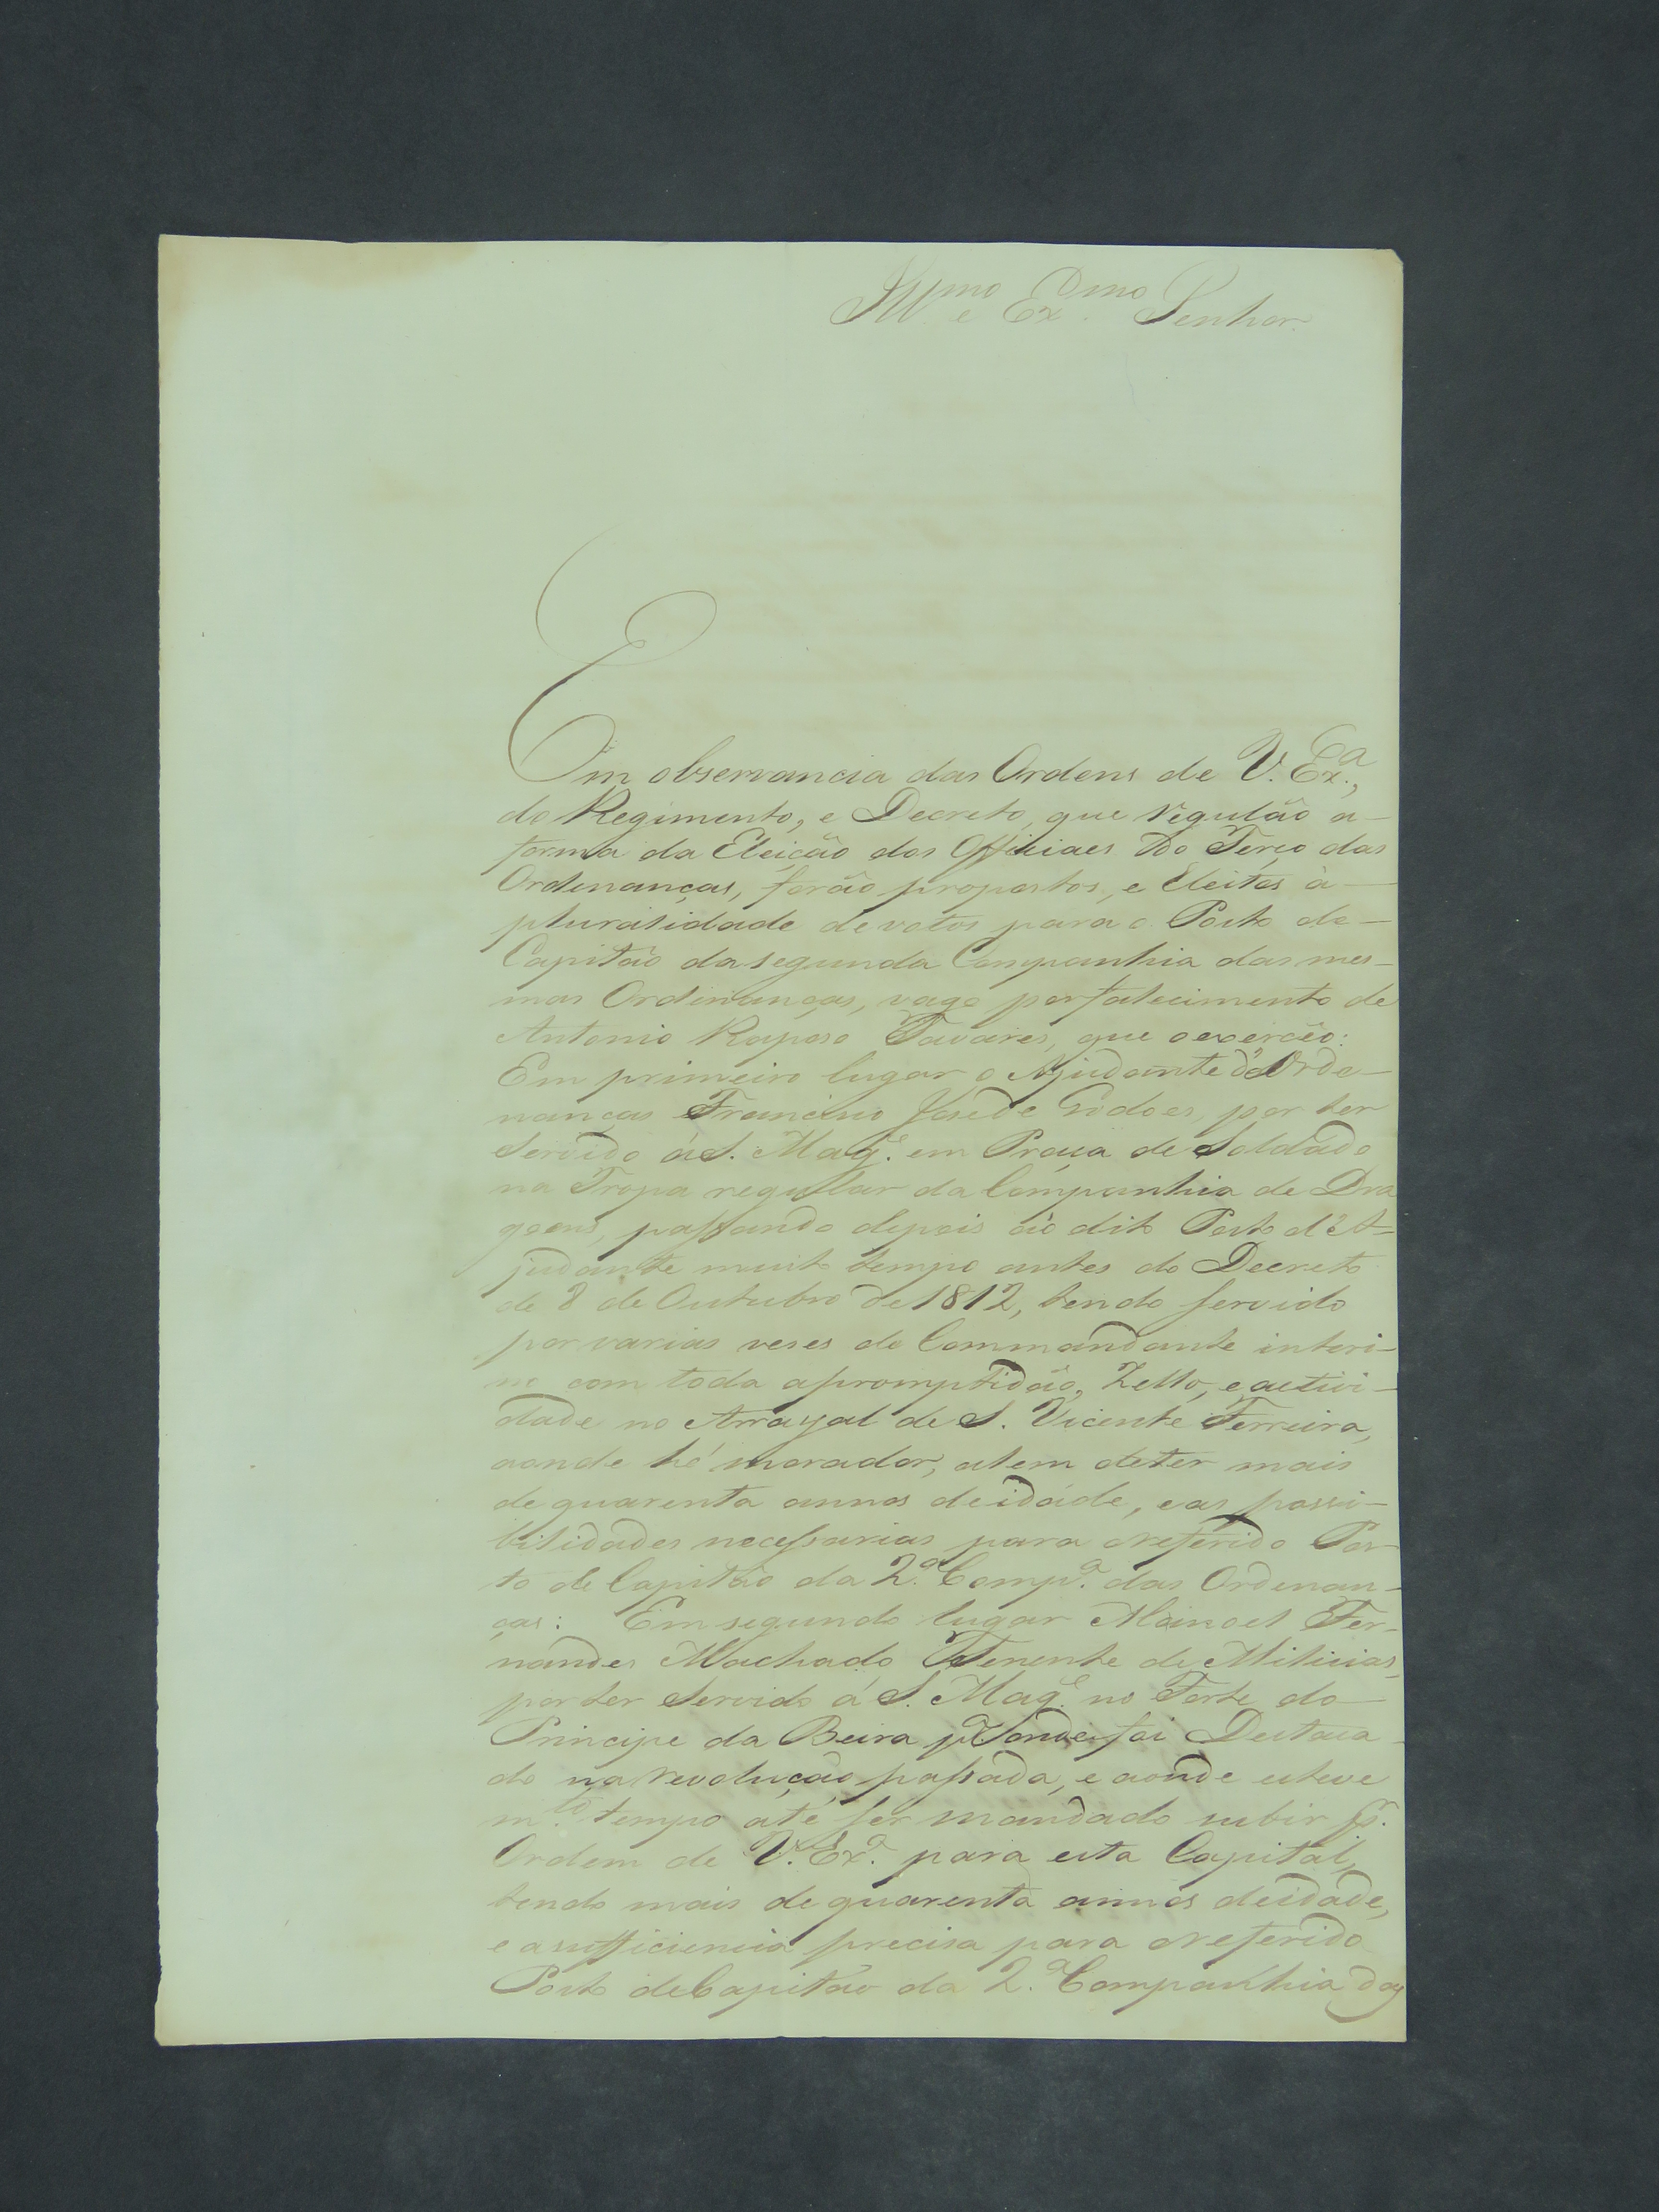 Ill.mo e Ex.mo Senhor.
Em observancia das Ordens de V. Ex.a,
do Regimento, e Decreto, que regulão a
forma da Eleição dos Officiaes do Terço das
Ordenanças, forão propostos, e Eleitos à
pluralidade de votos para o Posto de
Capitão da segunda Companhia das mes-
mas Ordenanças, vago por falecimento de
Antonio Raposo Tavares, que o exerceo:
Em primeiro lugar o Ajudante d'Orde-
nanças Francisco José de Godoes, por ter
Servido á S. Mag.e em Praça de Soldado
na Tropa regular da Companhia de Dra
goens, passando depois ào dito Posto d'A-
judante muito tempo antes do Decreto
de 8 de Outubro de 1812, tendo servido
por varias veses de Commandante interi-
no com toda a promptidão, Zello, e activi-
dade no Arrayal de S. Vicente Ferreira,
aonde hé morador, alem de ter mais
de quarenta annos de idade, e as possi-
bilidades necessarias para o referido Pos-
to de Capitão da 2.a Comp.a das Ordenan-
ças: Em segundo lugar Manoel Fer-
nandes Machado Tenente de Milicias,
por ter Servido á S. Mag.e no Forte do
Principe da Beira p.a onde foi Destaca-
do na revolução passada, e aonde esteve
m.to tempo até ser mandado subir p.r
Ordem de V. Ex.a para esta Capital,
tendo mais de quarenta annos de idade,
e a sufficiencia precisa para o referido
Posto de Capitão da 2.a Companhia das